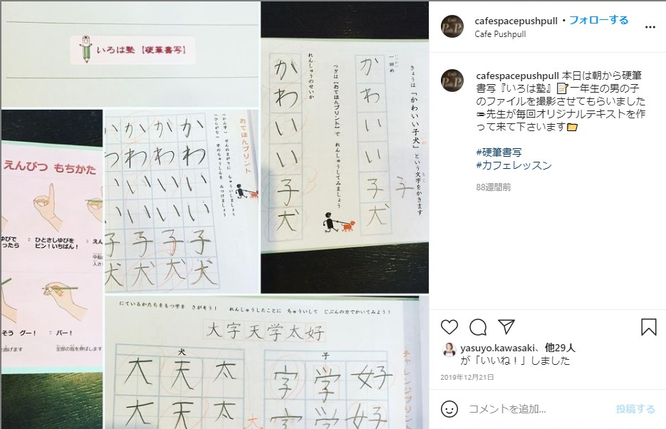 いろは塾【硬筆書写】
えんぴつ もちかた
ひとさしゆびを
ピン!いちばん!
グー!
パー!
おてほんプリント
かわいい子犬
かわいい子犬
かわいい子犬
かわいい子犬
きょうは「かわいい子犬」という文字をかきます
一回め
かわいい子犬
つぎは【おてほんプリント】で れんしゅうしてみましょう
れんしゅうのせいか
かわいい子犬
子
にているかたちをもつ字を さがそう! れんしゅうしたことに ちゅういして じぶんの字でかいてみよう!
大字天学太好
チャレンジプリント
子
字学好
字学好
犬
大天太
大天太
cafespacepushpull • フォローする
Cafe Pushpull
cafespacepushpull 本日は朝から硬筆
書写『いろは塾』📝一年生の男の子
のファイルを撮影させてもらいました
✏先生が毎回オリジナルテキストを作
って来て下さいます📂
#硬筆書写
#カフェレッスン
88週間前
yasuyo.kawasaki、他29人
が「いいね!」しました
2019年12月21日
コメントを追加...
投稿する